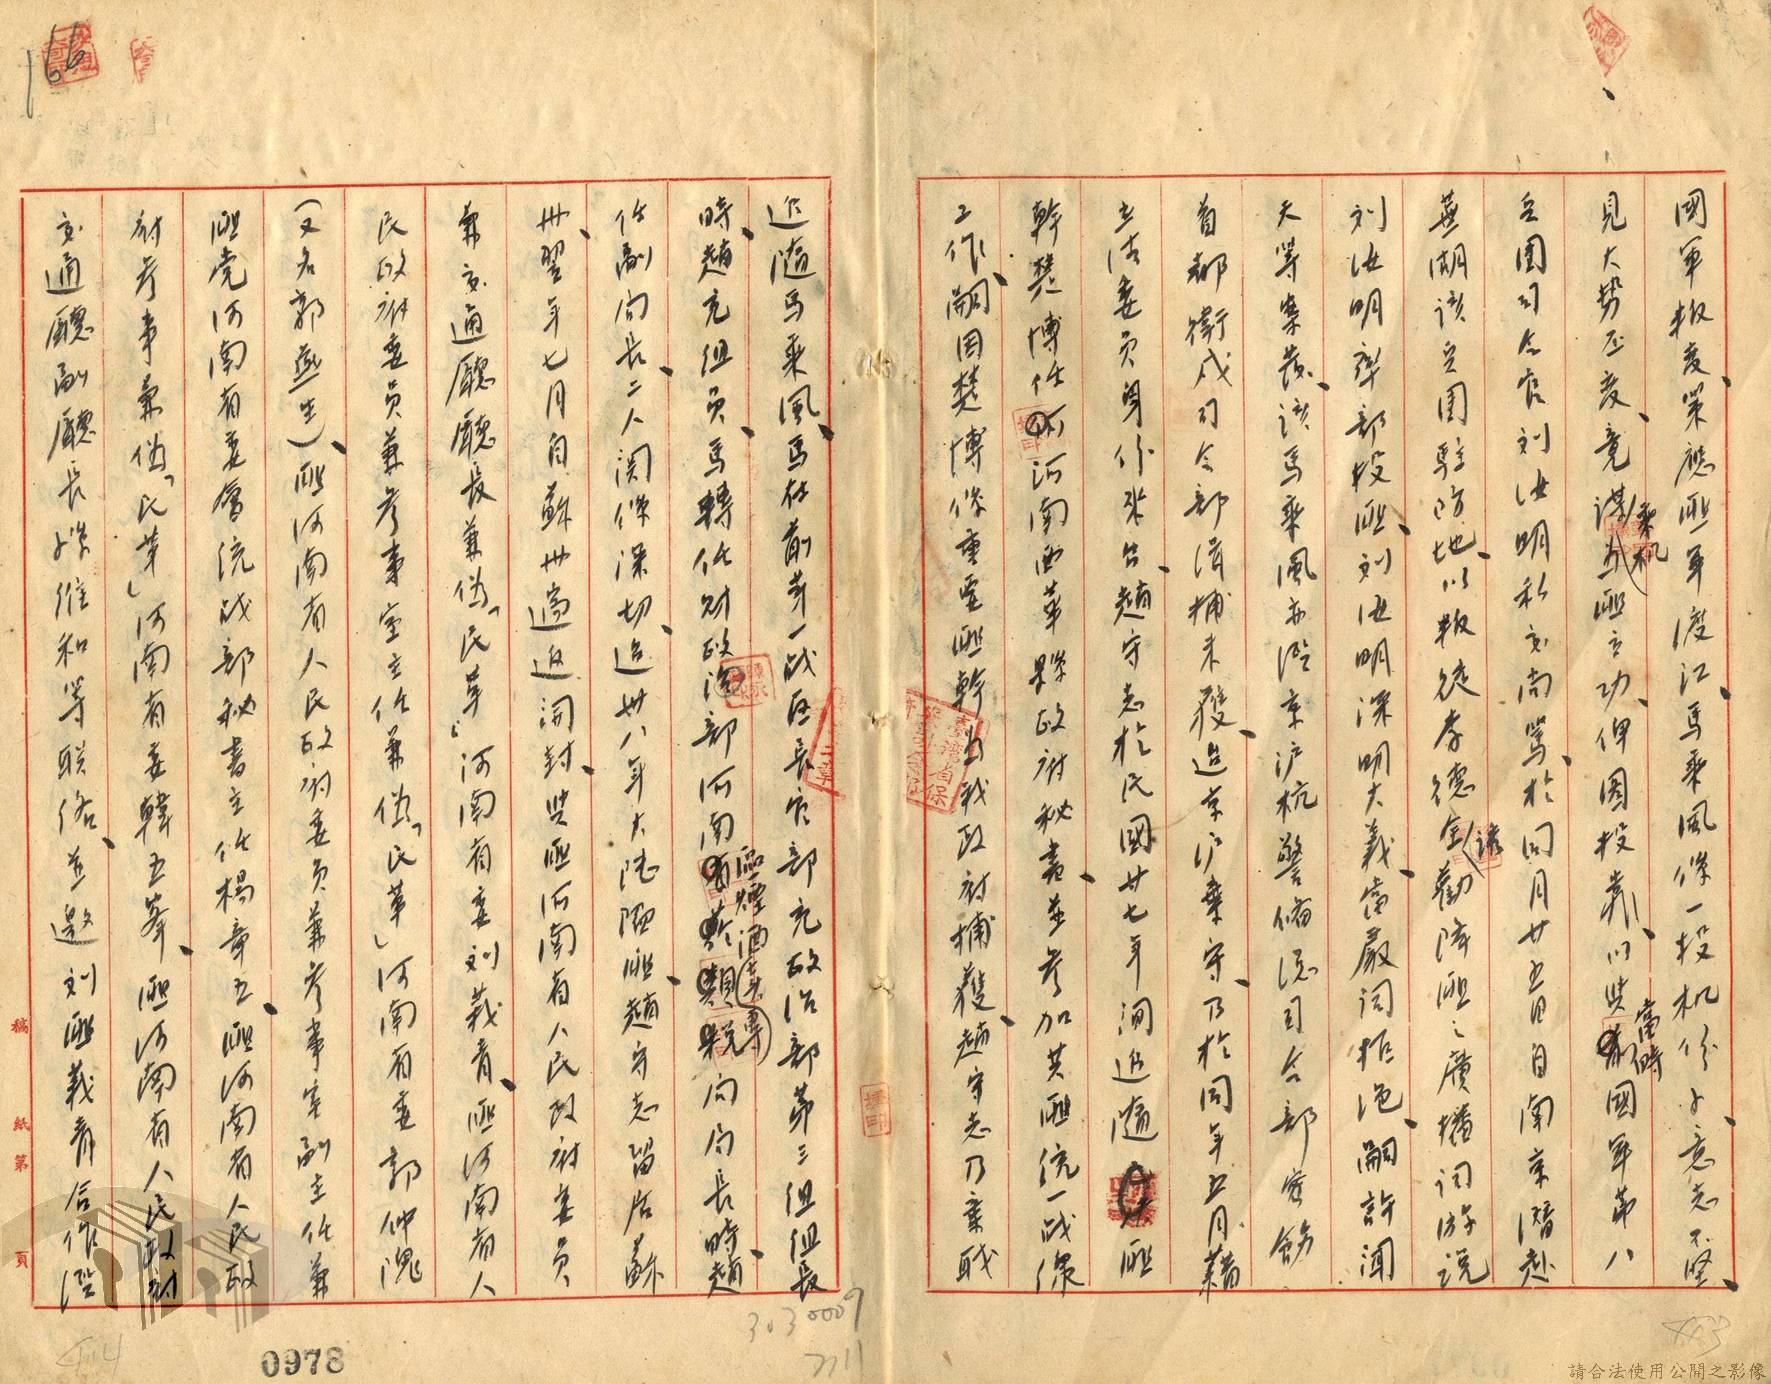 國軍扳变策應匪軍渡江、馬乘風係一投机份子意志不堅、
見大勢丕变、竟謀乘机為匪立功、俾圖投靠、以與當時國軍第八
兵團司令官刘汝明私交尚篤、於同月廿五日自南京潛赴
蕪湖該兵團駐防地、以叛徒李德全誘勸降匪之廣播詞游說
刘汝明率部投匪、刘汝明深明大義、當嚴詞拒絕、嗣許聞
天等案發、該馬乘風亦潛京沪杭警俻總司令部密飭
首都衛戍司令部緝捕未獲、迨京沪棄守、乃於同年五月藉
立法委員身份來台、趙守志於民國廿七年洄追隨匪
幹楚博任河南西華縣政府秘書、並參加共匪統一战線
工作、嗣因楚博係重要匪幹為我政府捕獲、趙守志乃棄職
追隨馬乘風、馬在前第一战區長官部充政治部第三組組長
時、趙充組員、馬轉任財政部河南區煙酒專賣局局長時、趙
任副局長、二人関係深切、迨卅八年大陸陷匪、趙守志留居蘇
卅、翌年七月自蘇卅遄返開封、與匪河南省人民政府委員
兼交通廳廳長兼偽「民革」河南省委刘義青、匪河南省人
民政府委員兼參事室主任兼偽「民革」河南省委郭仲隗
（又名郭燕生）、匪河南省人民政府委員兼參事室副主任兼
匪党河南省委會統战部秘書主任楊章五、匪河南省人民政
府參事兼偽「民革」河南省委韓五峯、匪河南省人民政府
交通廳副廳長卜維和等联俻、並邀刘匪義青合作潛
166
稿紙第 頁
0978
3030009
7111
414
413
請合法使用公開之影像